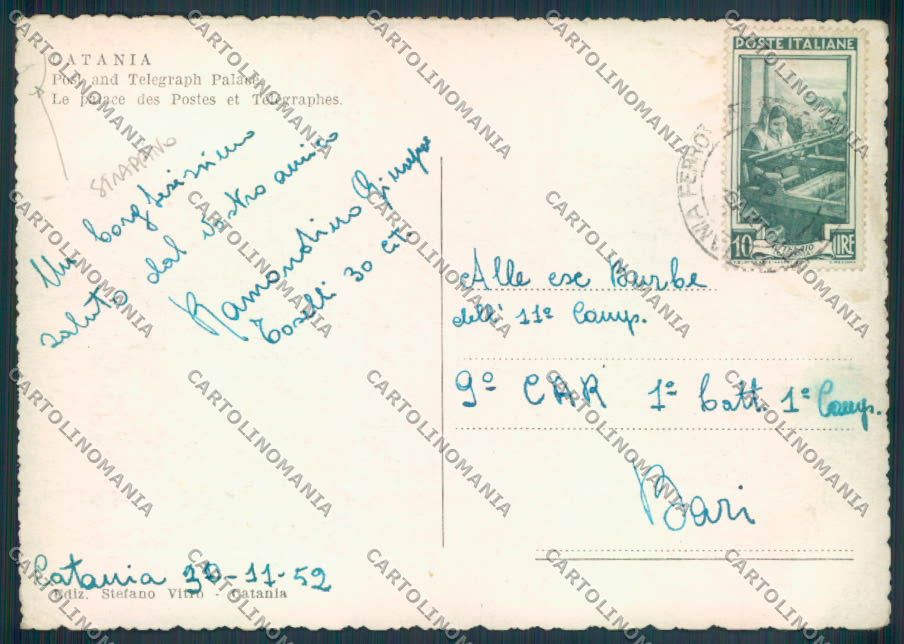 CATANIA
Post and Telegraph Palace.
Le palace des Postes et Télégraphes.
STRAPPINO
Un carissimo
saluto dal vostro amico
Ramondino Giuseppe
Toselli 30
Catania 30-11-52
Ediz. Stefano Vitro - Catania
POSTE ITALIANE
10 LIRE
Alle ex Burbe
dell' 11ª Comp.
9º CAR 1º Batt. 1ª Comp.
Bari
CARTOLINOMANIA